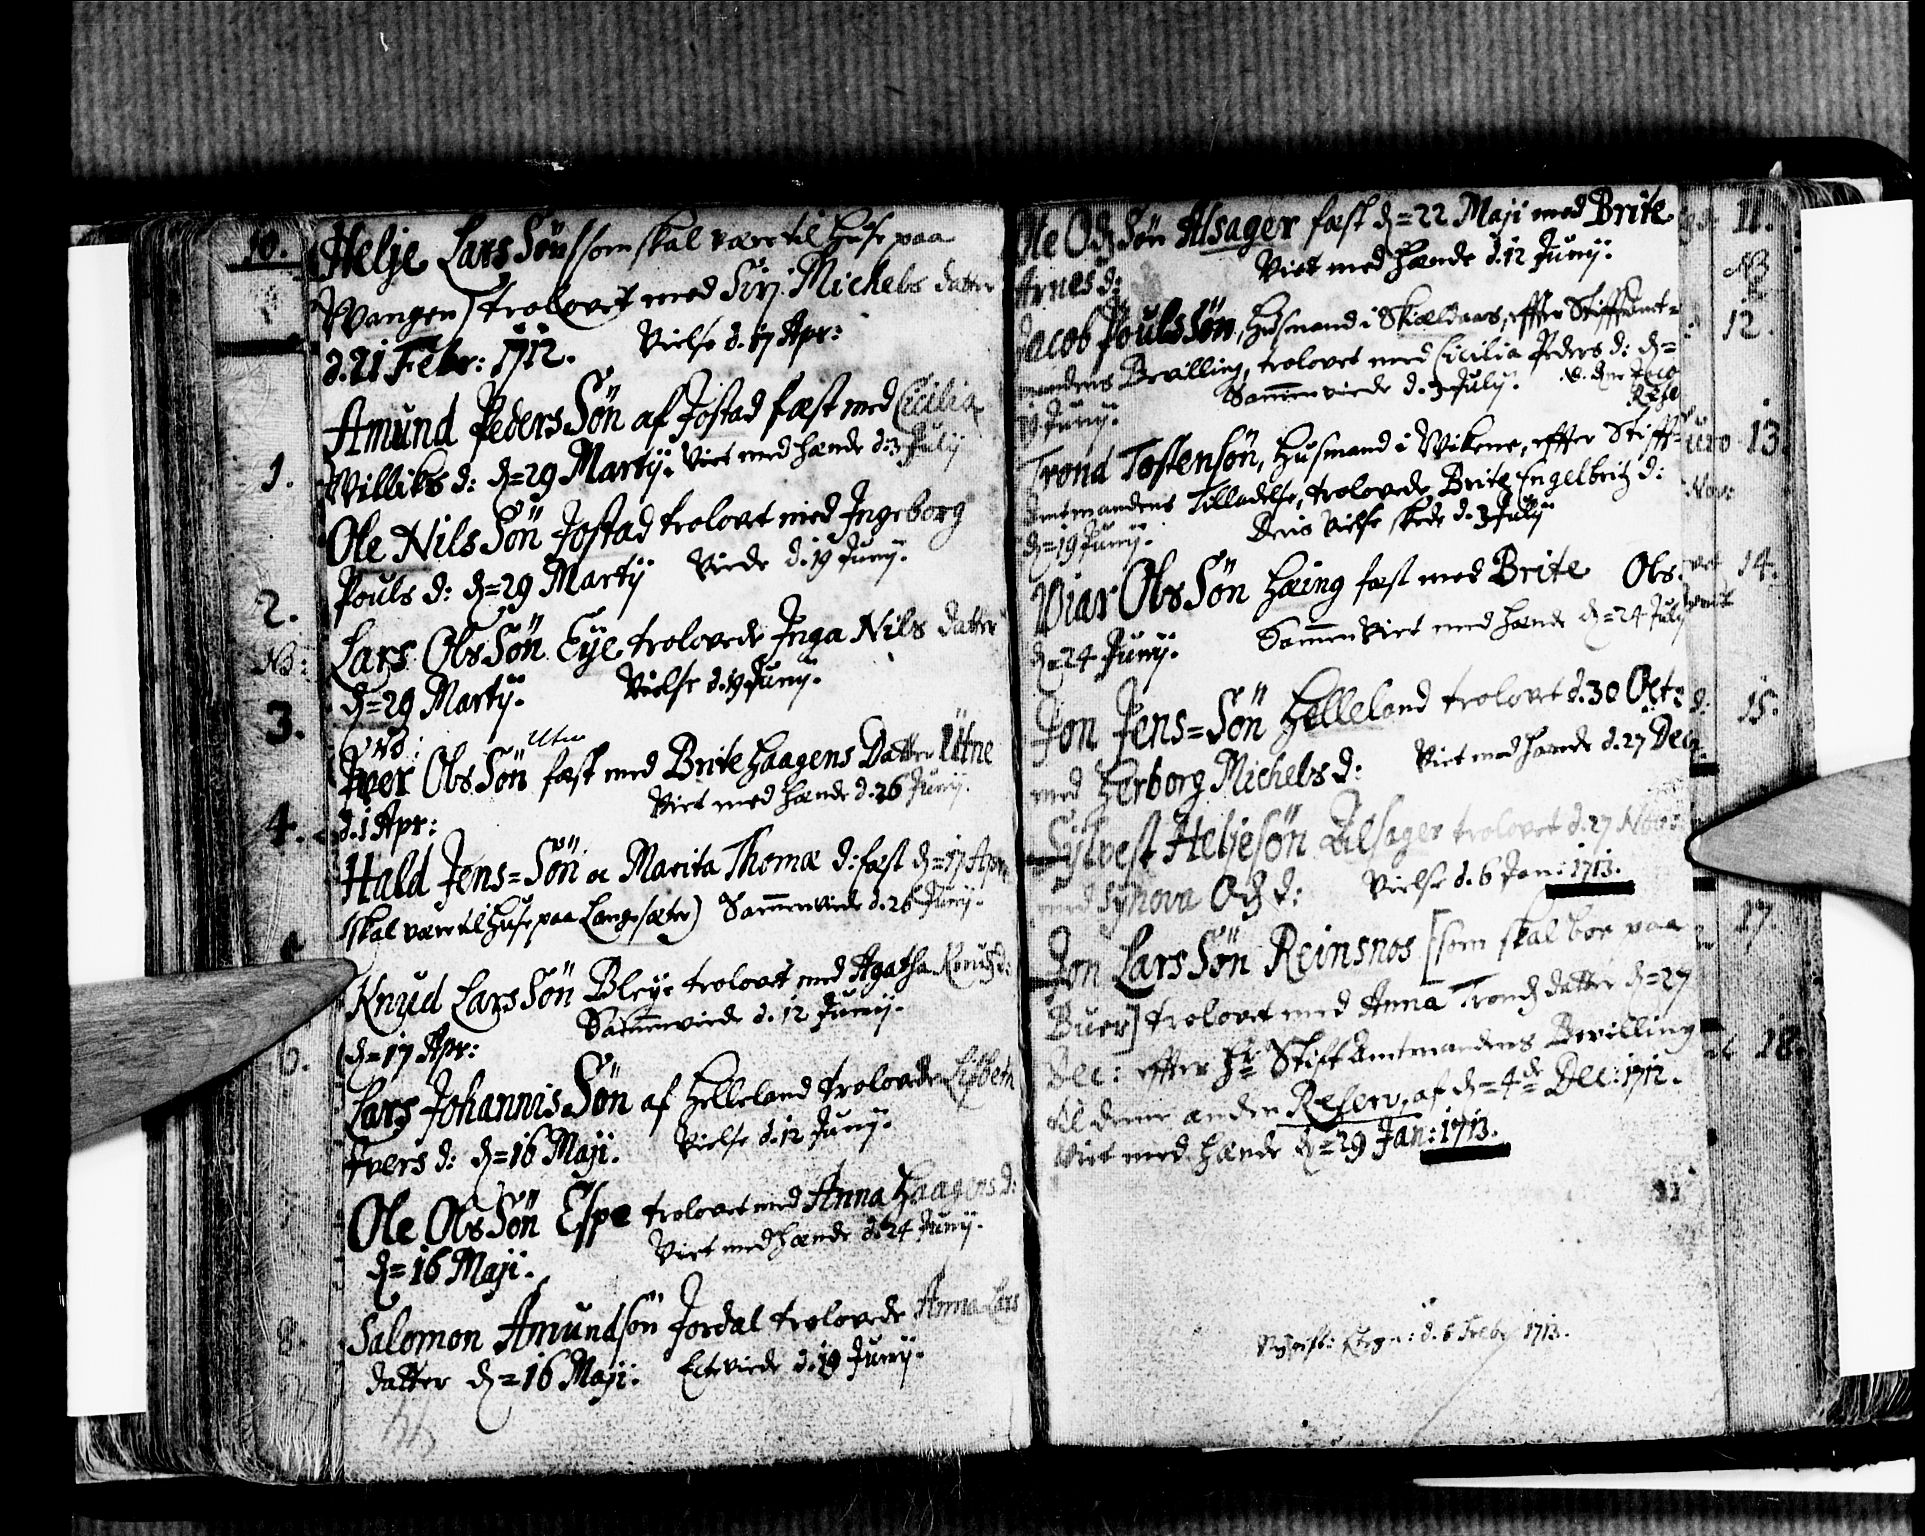 10.
Helje Lars Søn (som skal være til Huse paa
Wangen) trolovet med Siri Michels datter
d. 21 Febr: 1712. Vielse d. 17 Apr:
Amund Peders Søn af Jostad fæst med Cicilia
1. Williks d: d = 29 Martij. Viet med hænde d. 3 July
Ole Nils Søn Jostad trolovet med Ingeborg
2. Pouls d: d = 29 Martij Viede d. 19 Junij.
NB: Lars Ols Søn Eije trolovede Inga Nils datter
3. d = 29 Martij. Vielse d. 19 Junij.
NB: Utne
Iver Ols Søn fæst med Brite Haagens Datter Utne
4. d. 1 Apr: Viet med hænde d. 26 Junij.
Hald Jens = Søn oc Marita Thomæ d: fæst d = 17 Apr:
(skal være til Huse paa Langesæter) Sammenviede d. 26 Junij.
Knud Lars Søn Bleye trolovet med Agatha Knuds d:
d = 17 Apr: Sammenviede d. 12 Junij.
Lars Johannis Søn af Helleland trolovede Lisbeth
Ivers d: d = 16 Maji. Vielse d. 12 Junij.
Ole Ols Søn Espe trolovet med Anna Haagens d:
d = 16 Maji. Viet med hænde d. 24 Junij.
8. Salomon Amundsøn Jordal trolovede Anna Lars
datter d = 16 Maji. Ecteviede d. 19 Junij.
Ole Odz Søn Alsager fæst d = 22 Maji med Brite 11.
Arnes d: Viet med hænde d. 12 Junij.
NB
Jacob Pouls Søn, Husmand i Skieldaas, effter Stiffamt= 12.
mandens Bevilling, trolovet med Cicilia Peders d: d =
Junij. Sammenviede d. 3 July.
Trond Tostensøn, Husmand i Wikene, effter Stiff= 13.
Amtmandens Tilladelse, trolovede Brite Engelbritz d:
d = 19 Junij. Deris Vielse skede d. 3 Julij
Nov:
Viar Ols Søn Hæing fæst med Brite Ols 14.
d = 24 Junij. Sammen Viet med hænde d = 24 Julij
Jon Jens = Søn Helleland trolovet d. 30 Oct: 15.
med Herborg Michels d: Viet med hænde d. 27 Dec.
Sylvest Heljesøn Alsager trolovet d. 27 Nov:
med Synova Odz d: Vielse d. 6 Jan: 1713.
Jon Lars Søn Reinsnos [som skal boe paa 17.
Buer] trolovet med Anna Tronds datter d = 27
Dec: effter Hr Stift Amtmandens Bevilling 18.
til denne anden Reserv. af d = 4de Dec: 1712.
Viet med hænde d = 29 Jan: 1713.
d. 6 Febr. 1713.